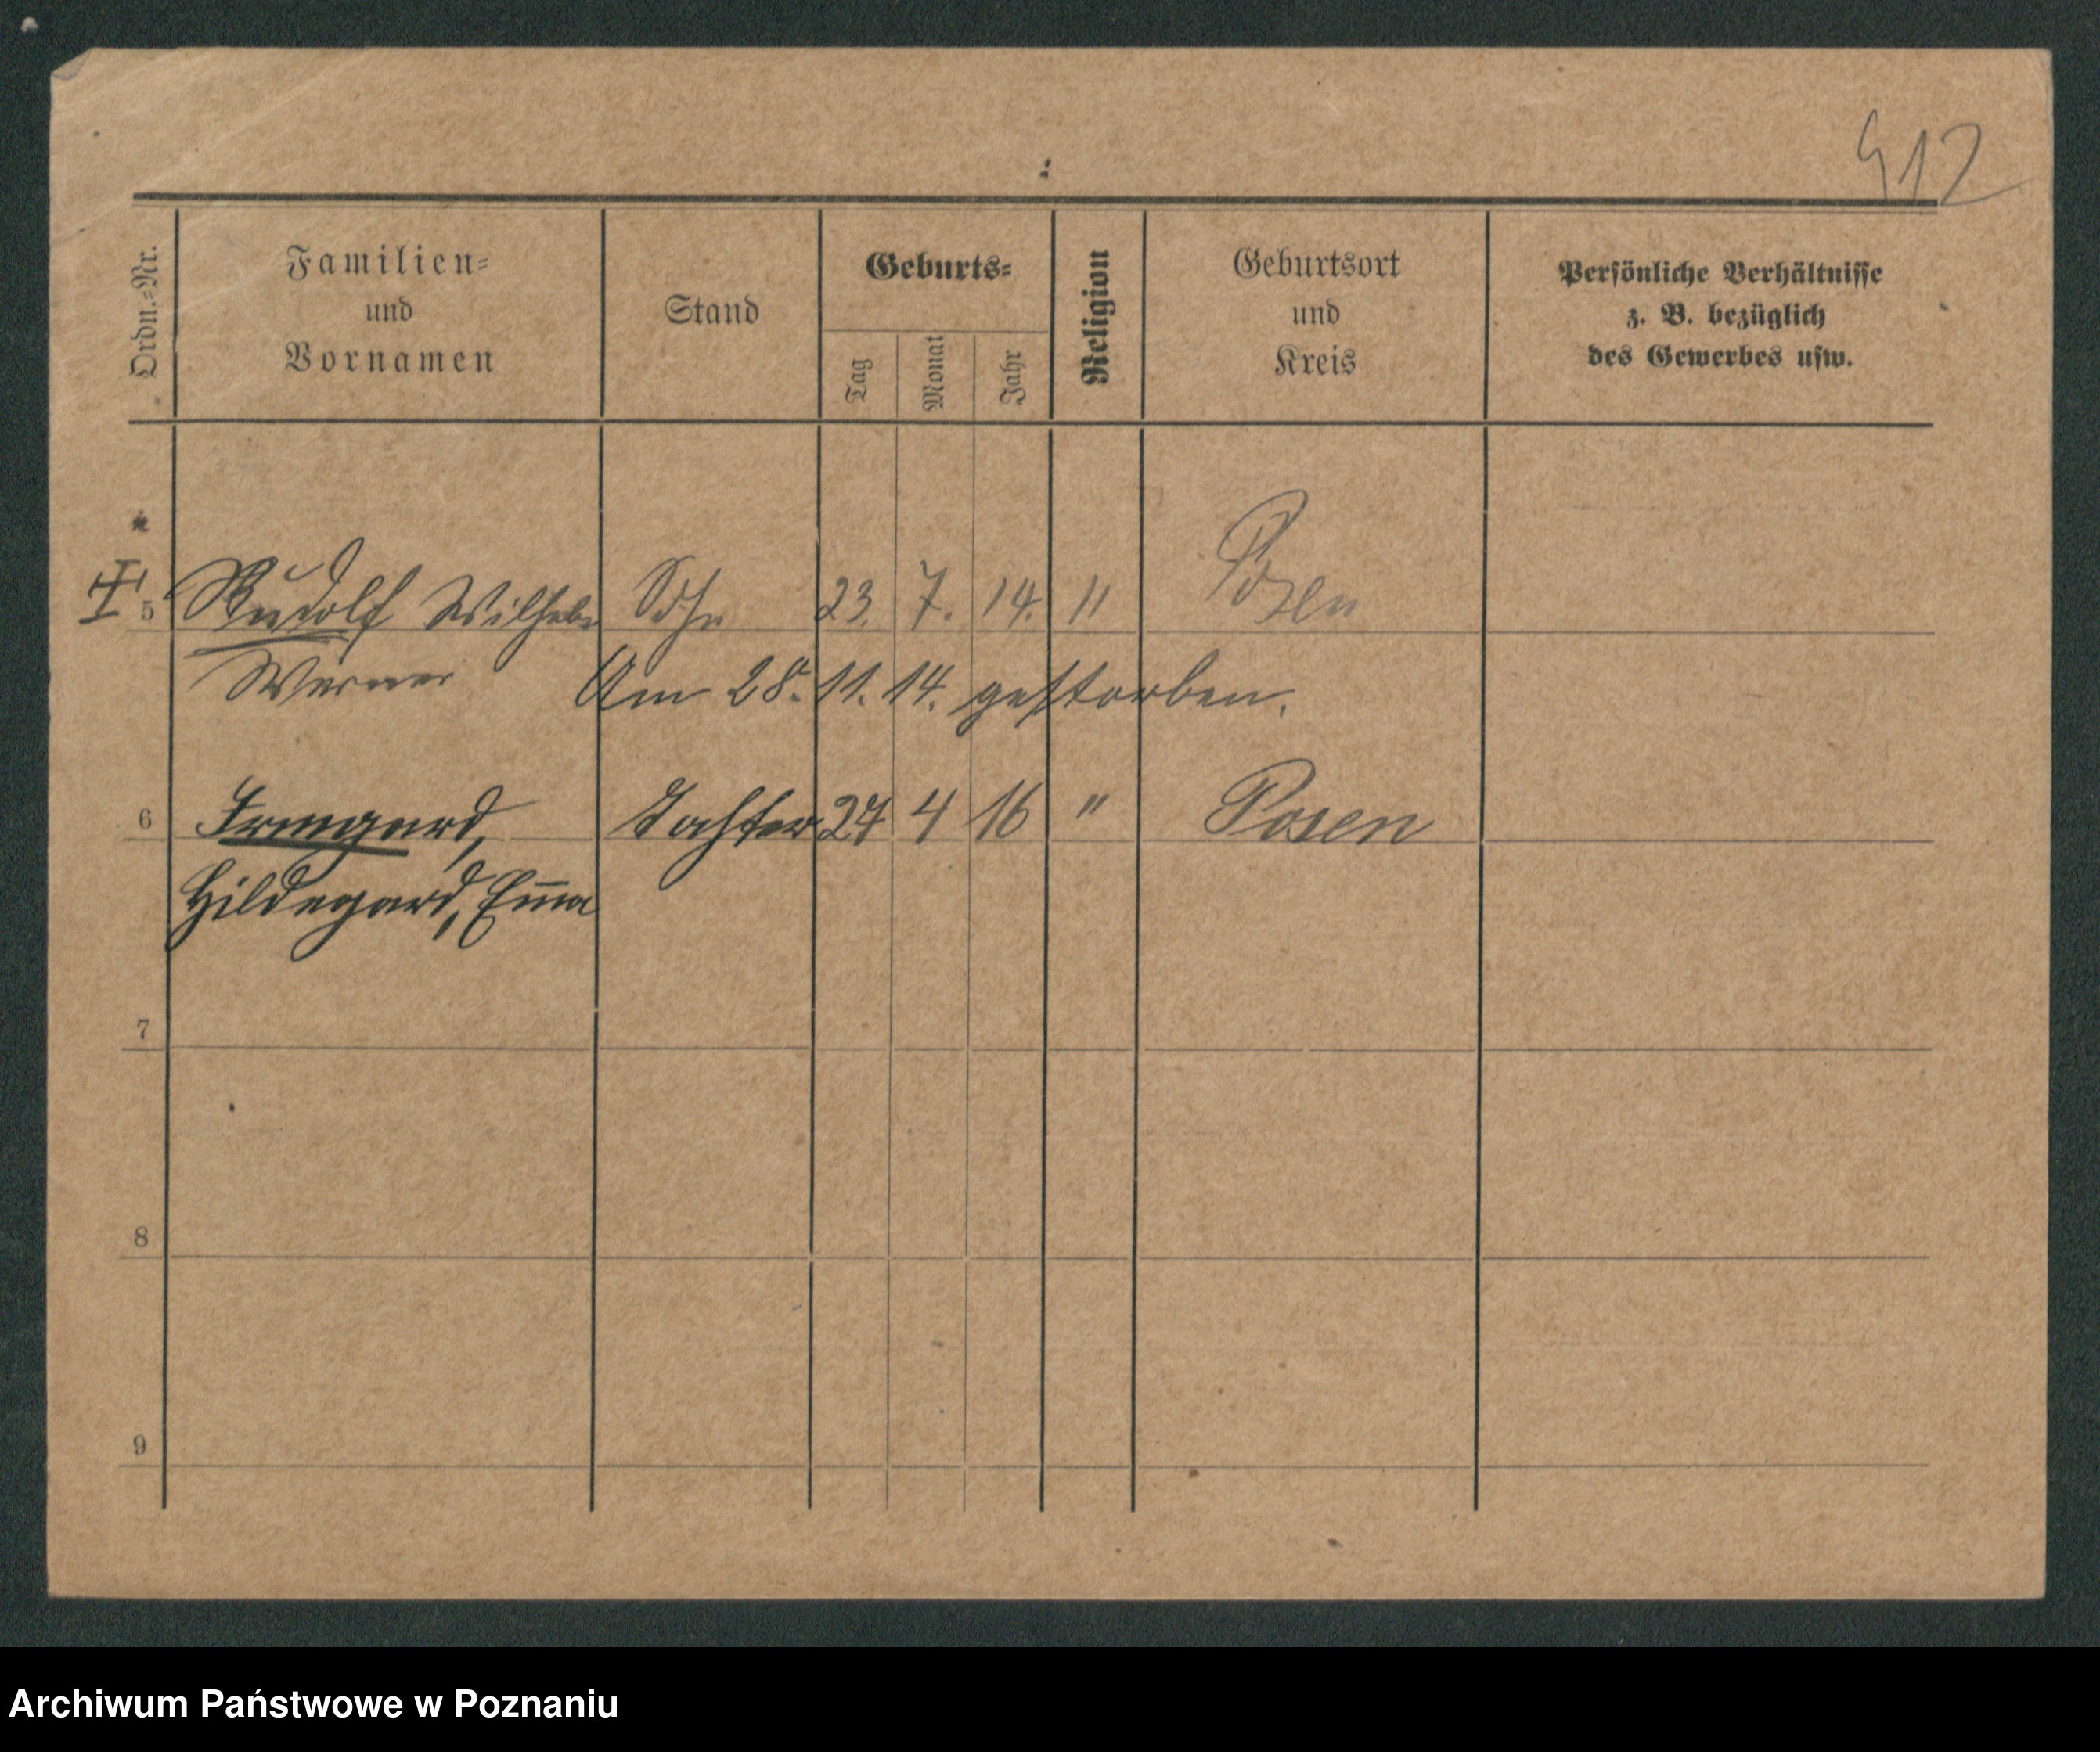 912
Ordn.-Nr.
Familien-
und
Vornamen
Stand
Geburts-
Tag
Monat
Jahr
Religion
Geburtsort
und
Kreis
Persönliche Verhältnisse
z. B. bezüglich
des Gewerbes usw.
5 Rudolf Wilhelm Sohn 23. 7. 14. " Posen
Werner Am 28. 11. 14. gestorben.
6 Irmgard, Tochter 24 4 16 " Posen
Hildegard, Em̅a
7
8
9
Archiwum Państwowe w Poznaniu